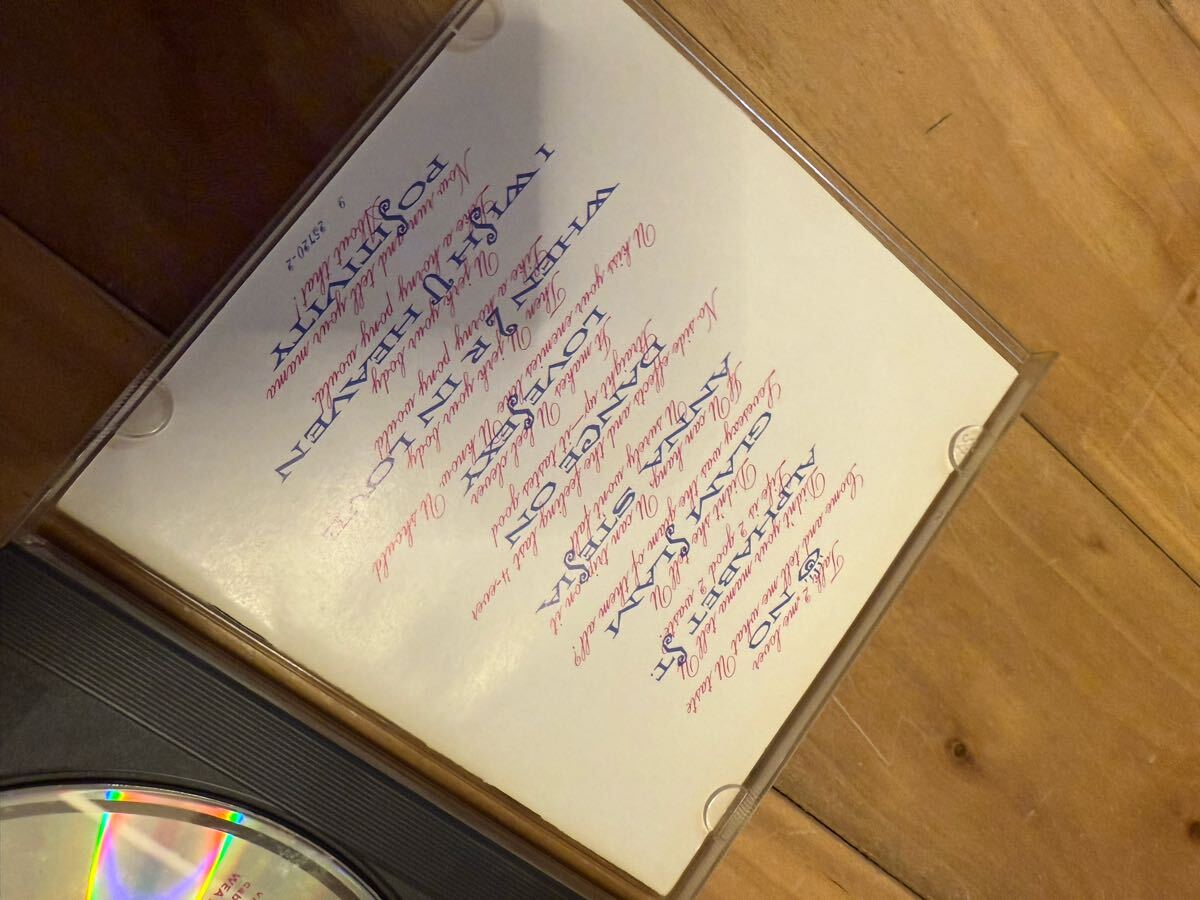 Talk 2 me lover
NO
Come and tell me what U taste
Didn't your mama tell U
ALPHABET ST.
Life is 2 good 2 waste?
Didn't she tell U
GLAM SLAM
Lovesexy was the glam of them all?
If U can hang, U can trip on it
ANNA STESIA
U surely won't fall
No side effects and the feeling last 4-ever
DANCE ON
Straight up - it tastes good
It makes U feel clever
LOVESEXY
U kiss your enemies like U know U should
Then U jerk your body
WHEN 2 R IN LOVE
Like a horny pony would
U jerk your body
I WISH U HEAVEN
Like a horny pony would.
Now run and tell your mama
POSITIVITY
About that!
9 25720-2
WEA